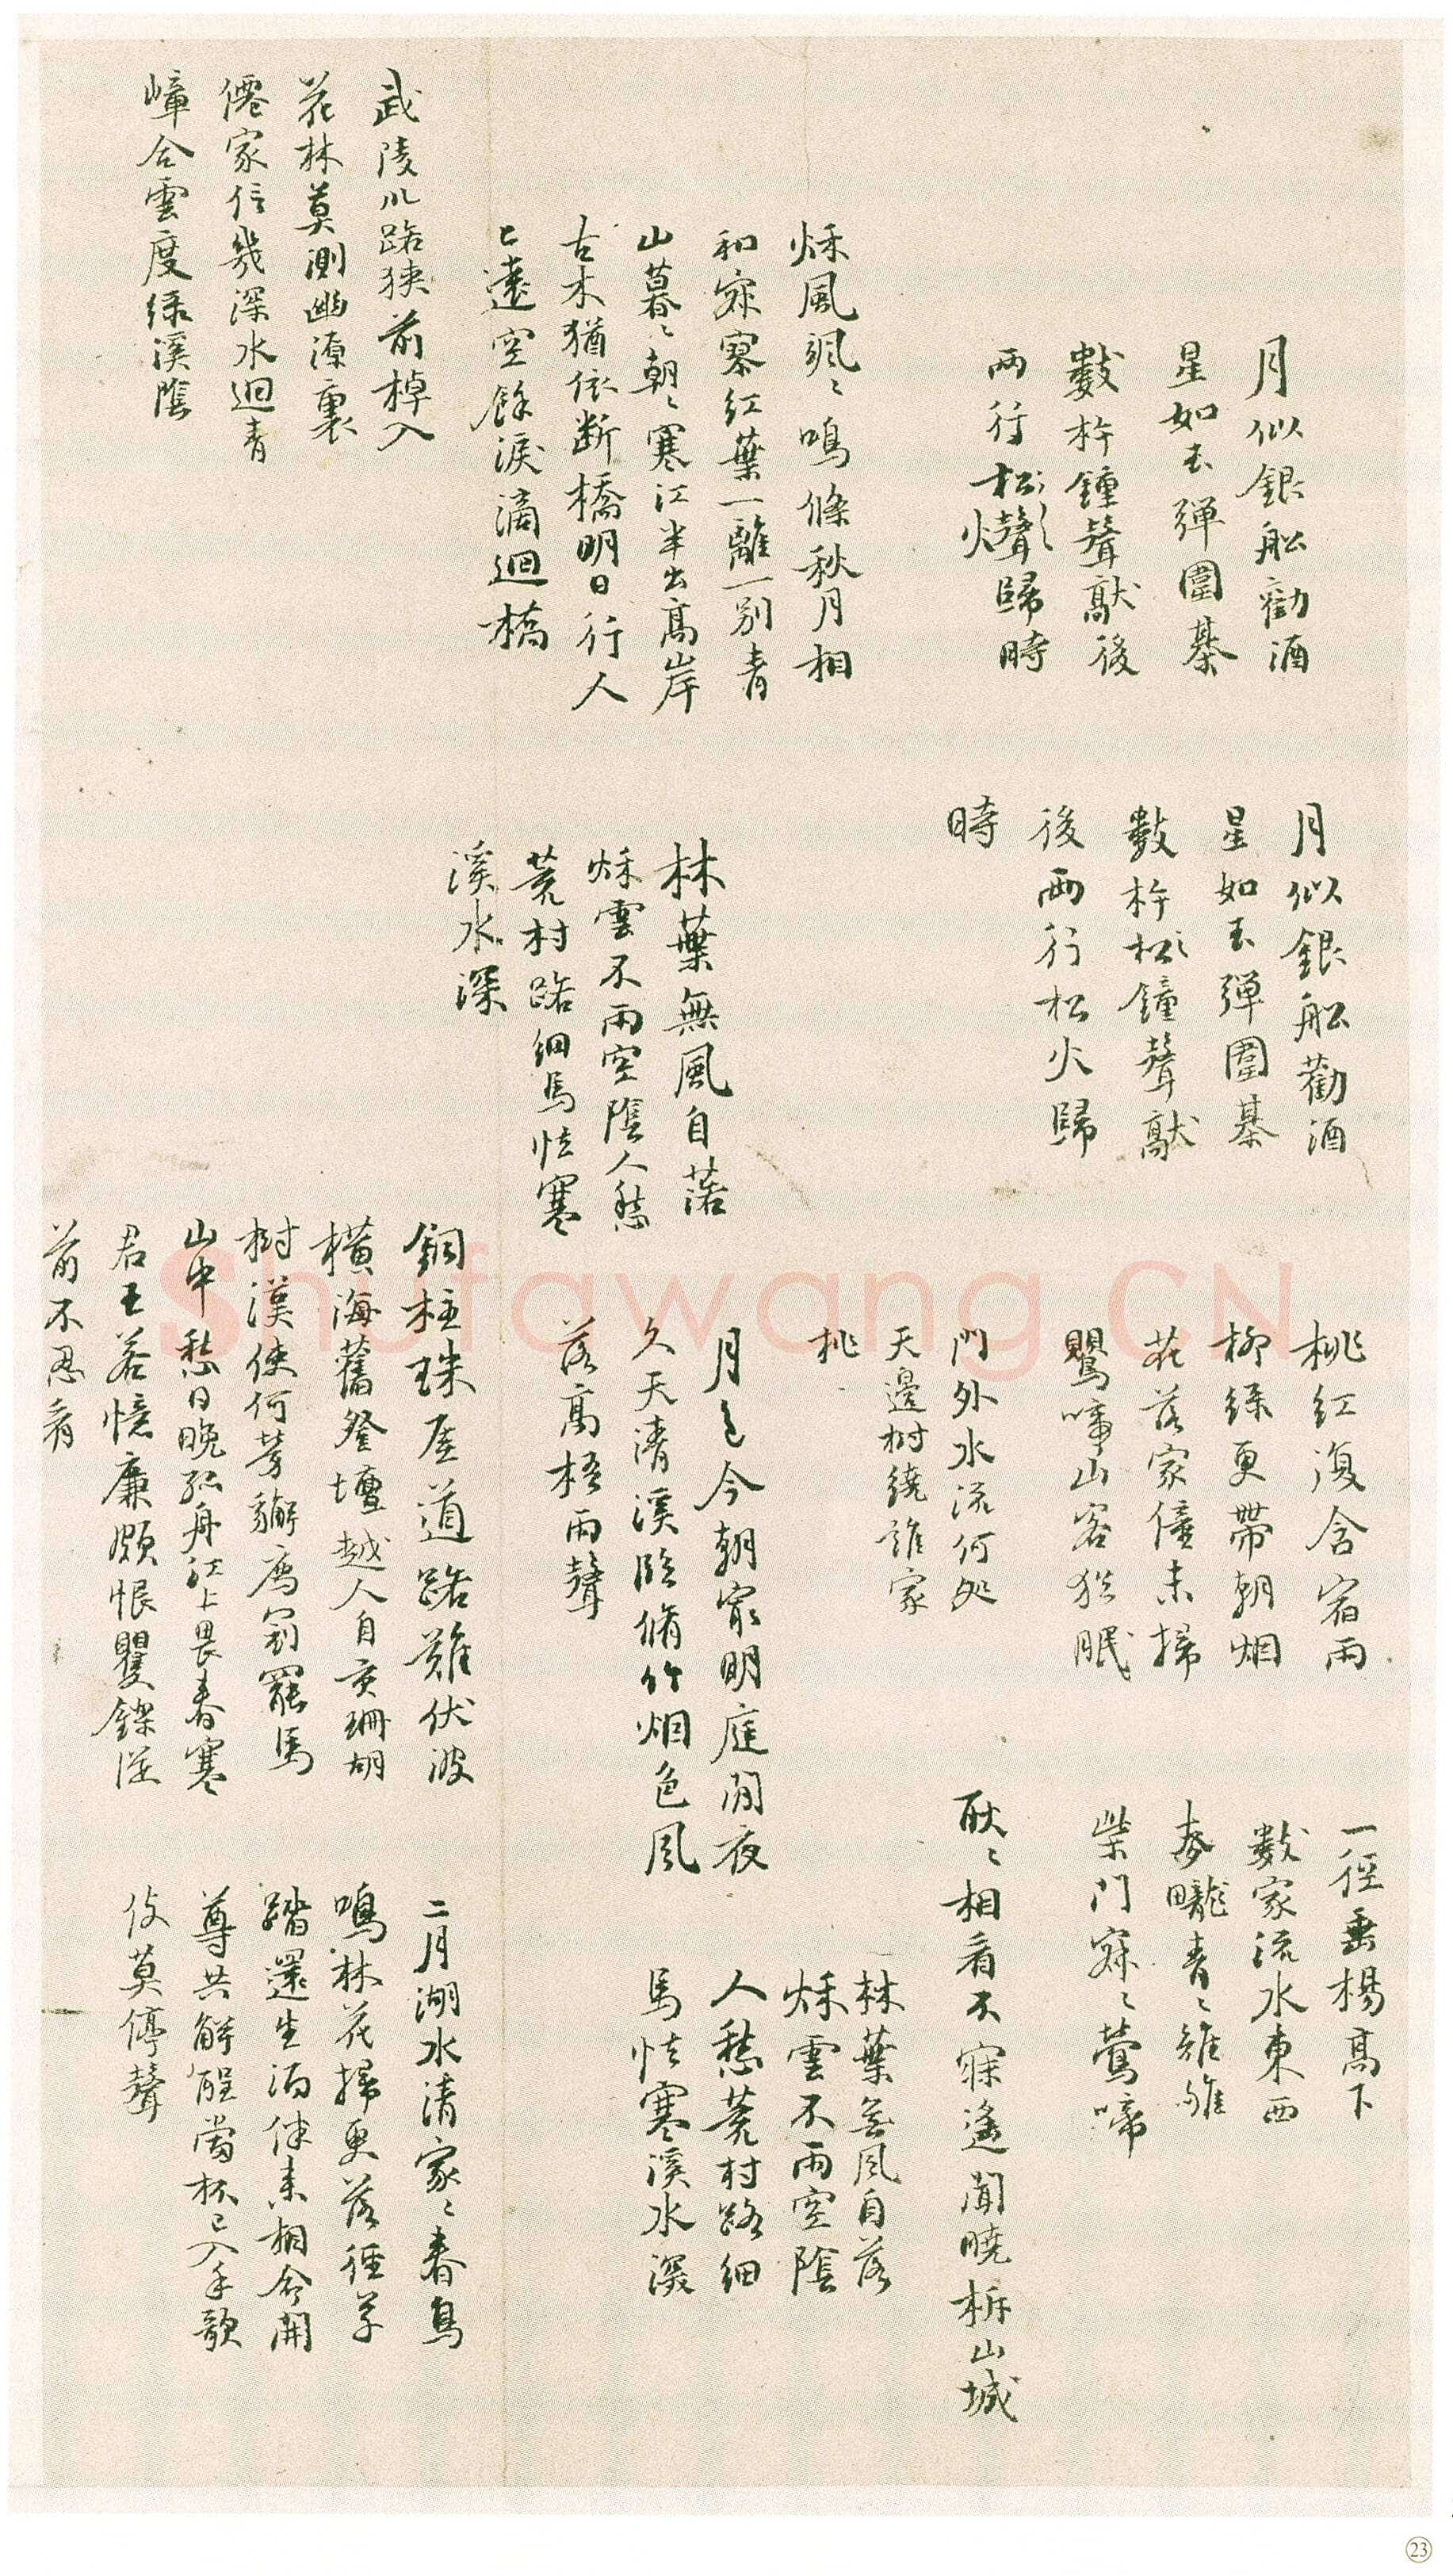 月似銀船勸酒
星如玉彈圍棊
數杵鍾聲獻後
兩行松火聲歸時
秌風颯〻鳴條秋月相
和寂寥紅葉一離一別青
山暮〻朝〻寒江半出高岸
古木猶依斷橋明日行人
已遠空餘淚滴迴橋
武陵川路狹前棹入
花林莫測幽源裏
僊家信幾深水迴青
嶂合雲度绿溪陰
月似銀船勸酒
星如玉彈圍棊
數杵松鐘聲獻
後兩行松火歸
時
林葉無風自落
秌雲不雨空陰人愁
荒村路細馬怯寒
溪水深
桃紅復含宿雨
柳绿更帶朝烟
花落家僮未掃
鸎啼山客猶眠
門外水流何処
天邊樹繞誰家
桃
月色今朝最明庭閒夜
久天清溪臨脩竹烟色風
落高梧雨聲
銅柱珠崖道路難伏波
橫海舊登壇越人自貢珊瑚
樹漢使何勞獬廌冠罷馬
山中愁日晚孤舟江上畏春寒
君王若憶廉頗恨矍鑠從
前不忍看
一徑垂楊高下
數家流水東西
麥隴青〻雉雊
柴門寂〻鶯啼
耿〻相看不寐遙聞曉柝山城
林葉無風自落
秌雲不雨空陰
人愁荒村路細
馬怯寒溪水深
二月湖水清家〻春鳥
鳴林花掃更落徑草
踏還生酒伴來相命開
尊共解酲當杯已入手歌
伎莫停聲
Shufawang.CN
23